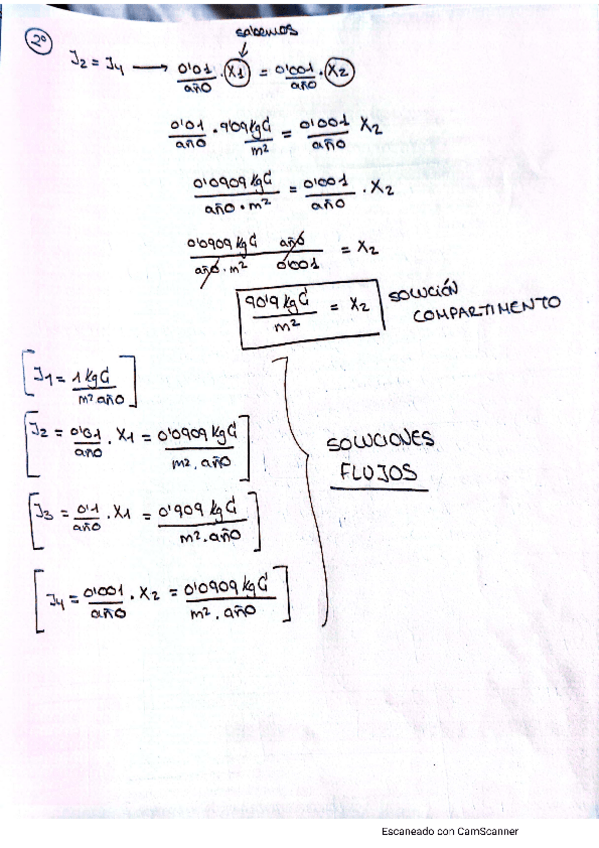 2º
sabemos
J2 = J4 → 0'01/año · X1 = 0'001/año · X2
0'01/año · 9'09 KgC/m² = 0'001/año X2
0'0909 KgC/año · m² = 0'001/año · X2
0'0909 KgC año/año · m² 0'001 = X2
90'9 KgC/m² = X2 SOLUCIÓN
COMPARTIMENTO
[J1 = 1 KgC/m² año]
[J2 = 0'01/año · X1 = 0'0909 KgC/m² . año]
SOLUCIONES
FLUJOS
[J3 = 0'1/año · X1 = 0'909 KgC/m² . año]
[J4 = 0'001/año · X2 = 0'0909 KgC/m² . año]
Escaneado con CamScanner